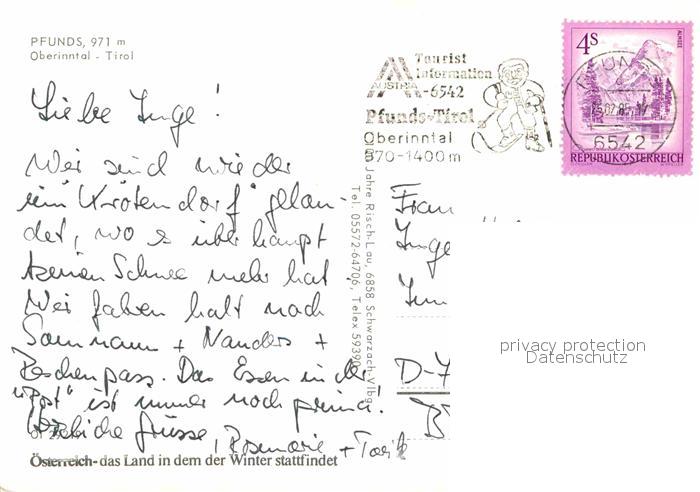 PFUNDS, 971 m
Oberinntal - Tirol
Liebe Inge!
Wir sind wieder
im "Krötendorf" gelan-
det, wo es überhaupt
keinen Schnee mehr hat.
Wir fahren halt nach
Samnaun + Nauders +
Reschenpass. Das Essen in der
"Post" ist immer noch prima!
Herzliche Grüsse, Rosmarie +
Österreich - das Land in dem der Winter stattfindet
Jahre Risch-Lau, 6858 Schwarzach-Vlbg.
Tel. 05572-64706, Telex 59390
Tourist
Information
AUSTRIA - 6542
Pfunds-Tirol
Oberinntal
970-1400 m
4S
ALMSEE
6542
REPUBLIK ÖSTERREICH
Frau
Inge
D-7
privacy protection
Datenschutz